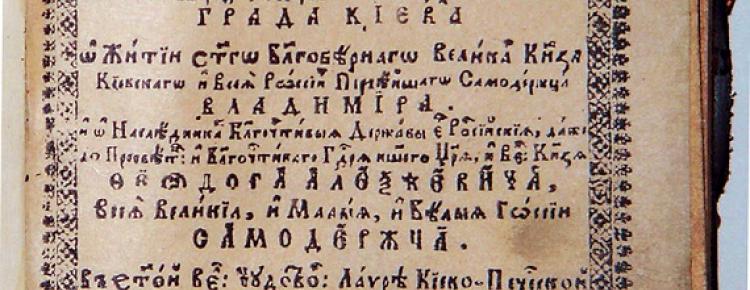 ГРАДА КІЕВА
Ѡ Житіи ст҃гѡ Бл҃говѣрнагѡ Великаⷢ҇ Кн҃зѧ
Кіевскагѡ и҆ всеѧ Рѡссіи Первѣйшагѡ Самодержца
ВЛАДИМІРА.
и҆ ѡ Наслѣдникахъ Бл҃гочⷭ҇тивыѧ Державы е҆гѡ Рѡссійскіѧ, даже
до Пресвѣтⷧ҇: и҆ Бл҃гочⷭ҇тиваго Гдⷭ҇рѧ нашего Цр҃ѧ, и҆ Ве: Кн҃зѧ
ѲЕѠДОРА АЛЕѮѢЕВИЧА,
всеѧ Великіѧ, и҆ Малыѧ, и҆ Бѣлыѧ Рѡссіи
САМОДЕРЖЦА.
Въ ст҃ой Ве: Чудотво: Лаурѣ Кіево-Печерской